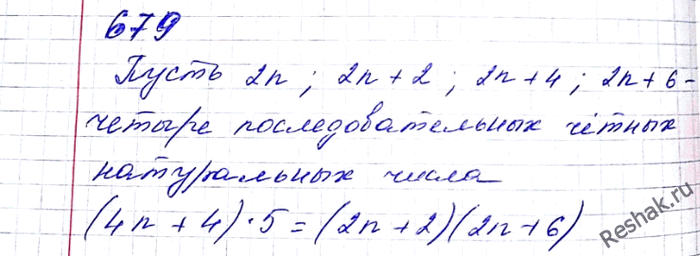 679
Пусть 2n; 2n+2; 2n+4; 2n+6 -
четыре последовательных чётных
натуральных числа
(4n+4)·5=(2n+2)(2n+6)
Reshak.ru